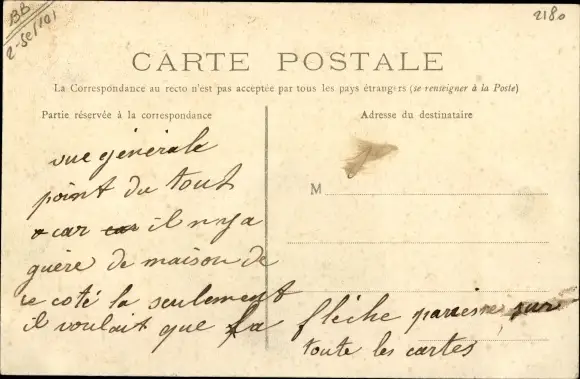 BB
2180
CARTE POSTALE
La Correspondance au recto n'est pas acceptée par tous les pays étrangers (se renseigner à la Poste)
Partie réservée à la correspondance
Adresse du destinataire
M
vue générale
point du tout
car car il n y a
guère de maison de
ce coté la seulement
il voulait que la flèche paraisse sur
toute les cartes